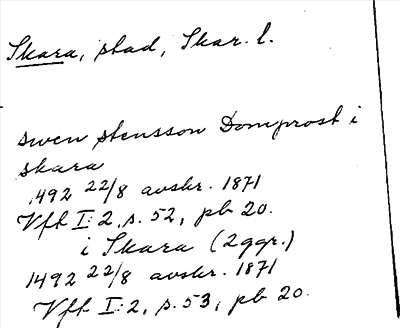 Skara, stad, Skar. l.
swen stensson Domprost i
skara
1492 22/8 avskr. 1871
Vft I:2, s. 52, pb 20.
i Skara (2 ggr.)
1492 22/8 avskr. 1871
Vft I:2, s. 53, pb 20.